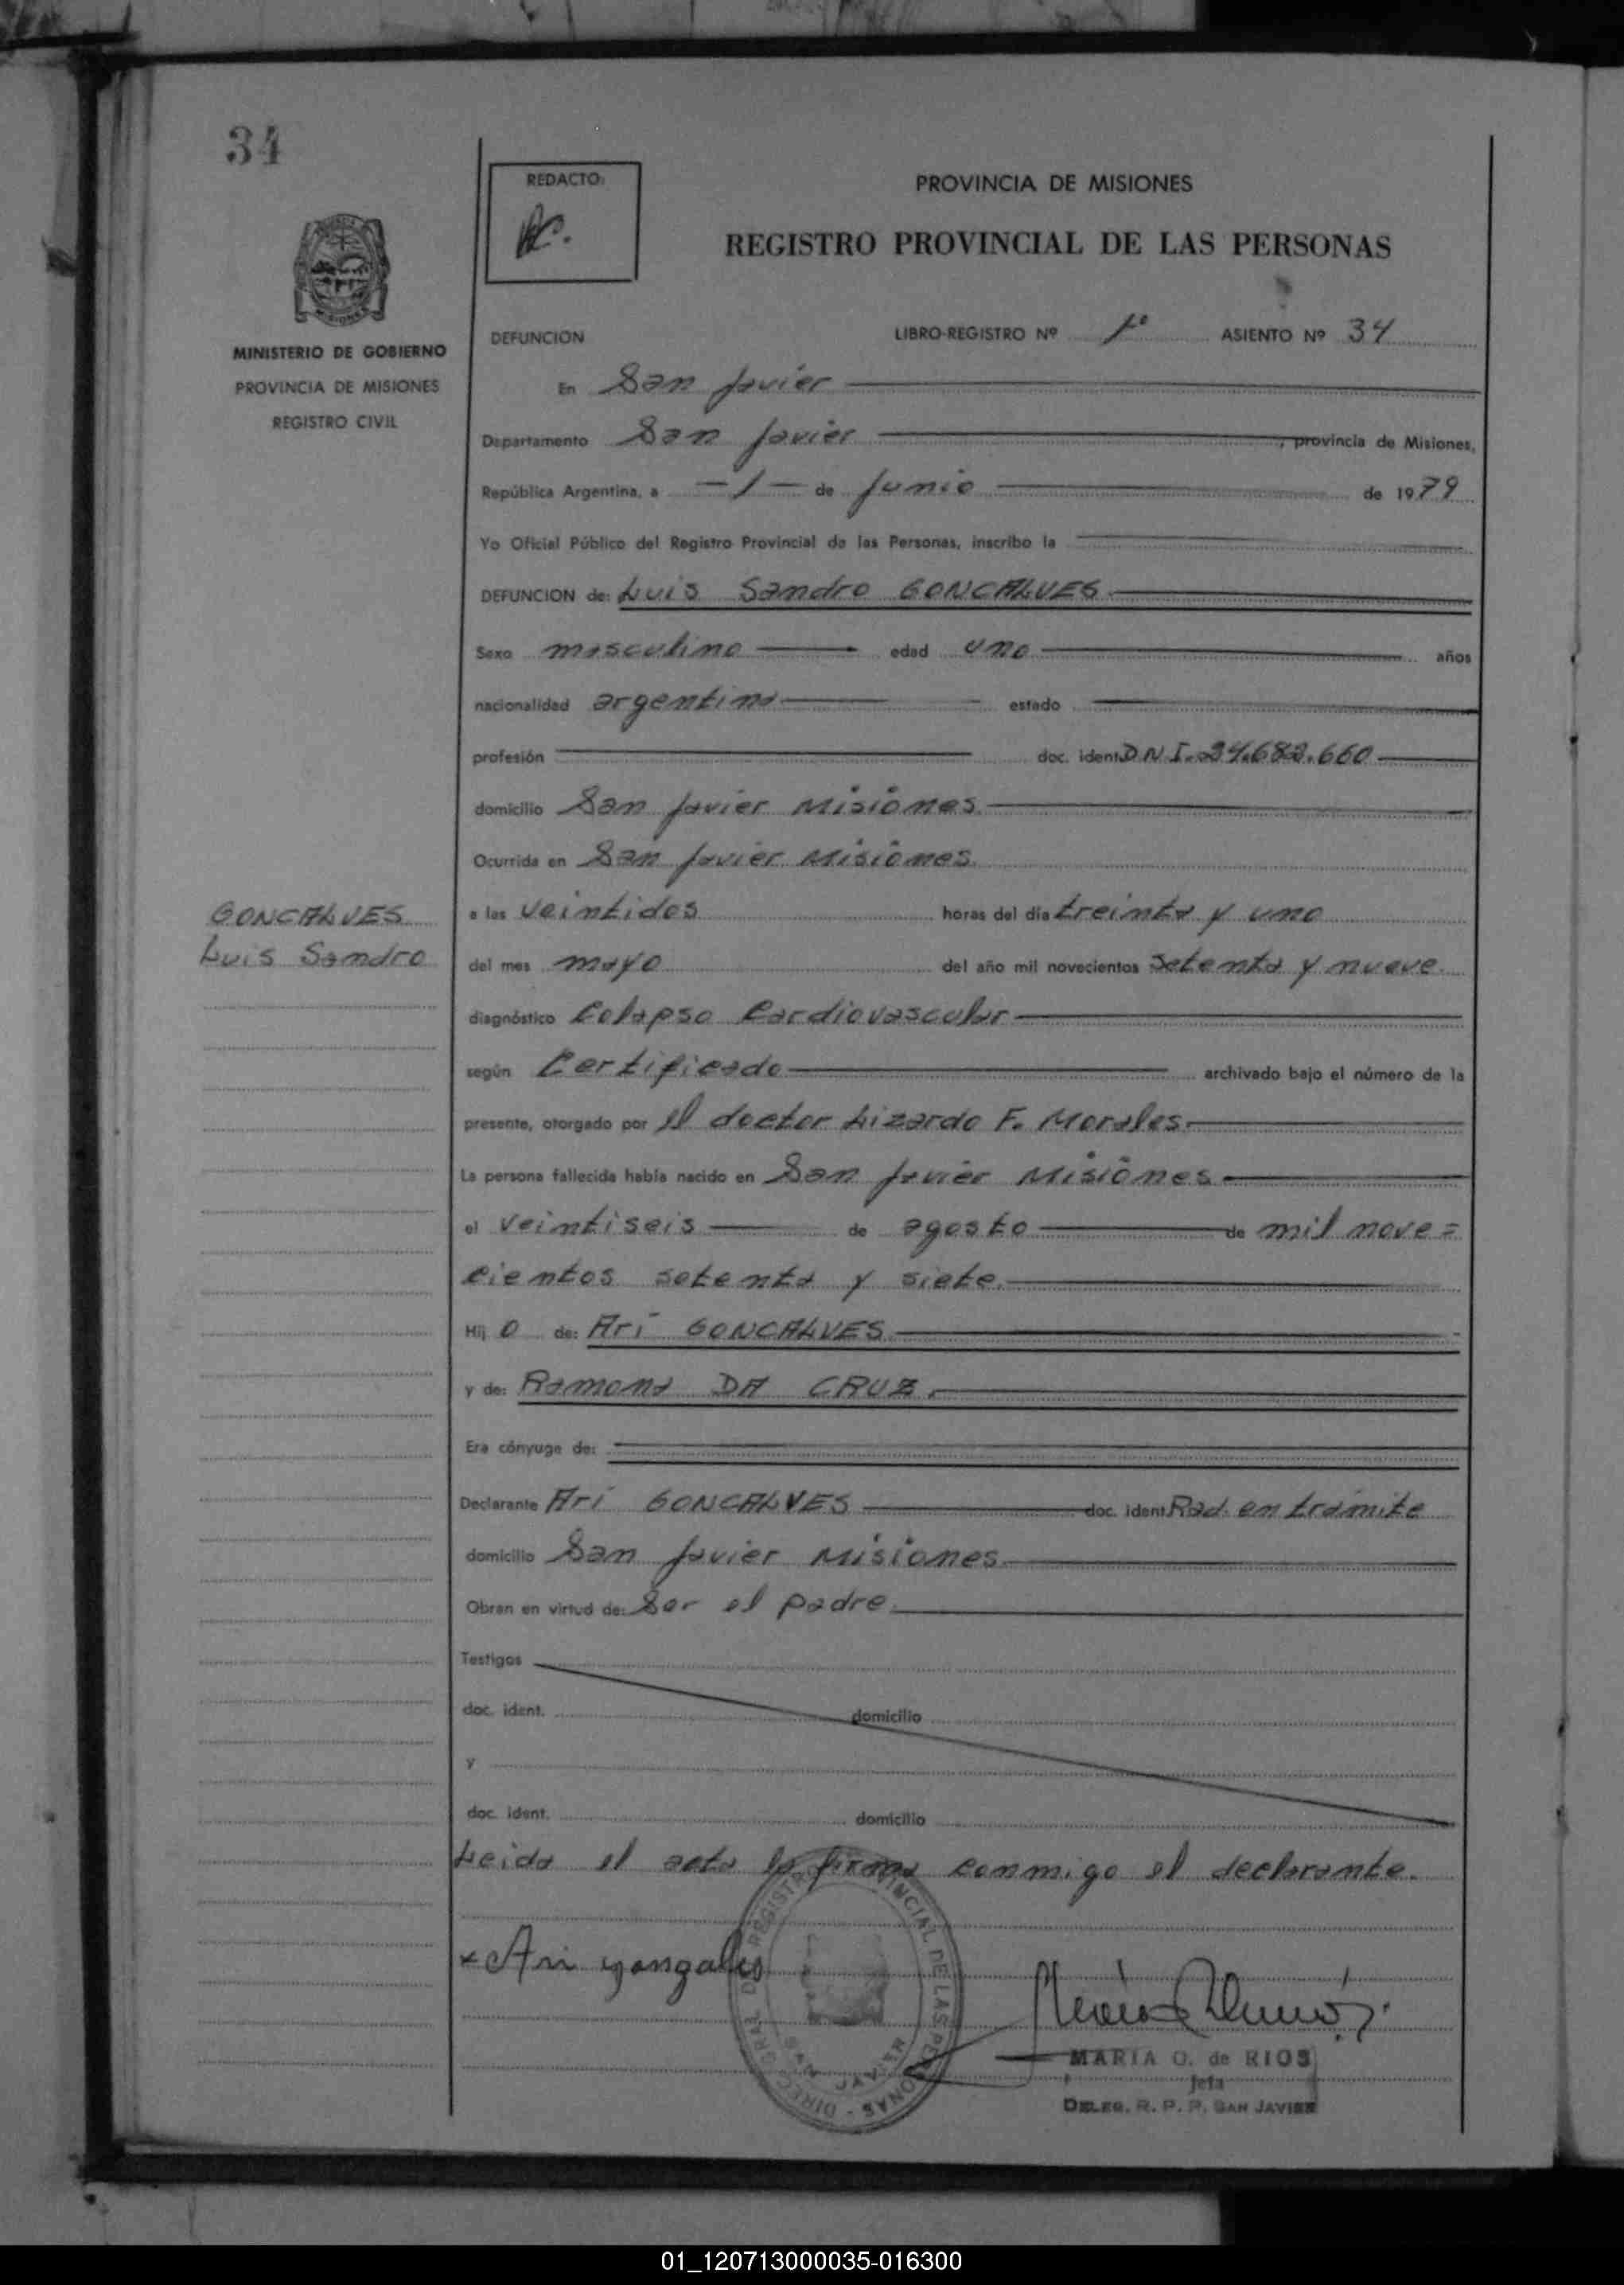 34
REDACTO:
PROVINCIA DE MISIONES
REGISTRO PROVINCIAL DE LAS PERSONAS
MISIONES
MINISTERIO DE GOBIERNO
PROVINCIA DE MISIONES
REGISTRO CIVIL
DEFUNCION LIBRO-REGISTRO Nº 1º ASIENTO Nº 34
En San Javier
Departamento San Javier, provincia de Misiones,
República Argentina, a -1- de Junio de 1979
Yo Oficial Público del Registro Provincial de las Personas, inscribo la
DEFUNCION de: Luis Sandro GONCALVES
Sexo masculino edad uno años
nacionalidad argentina estado
profesión doc. ident. D N I.
domicilio San Javier Misiones.
Ocurrida en San Javier Misiones.
GONCALVES
Luis Sandro
a las veintidos horas del dia treinta y uno
del mes mayo del año mil novecientos setenta y nueve.
diagnóstico Colapso Cardiovascular
según Certificado archivado bajo el número de la
presente, otorgado por el doctor Lizardo F. Morales.
La persona fallecida había nacido en San Javier Misiones.
el veintiseis de agosto de mil nove=
cientos setenta y siete.
Hij o de: Ari GONCALVES
y de: Ramona DA CRUZ.
Era cónyuge de:
Declarante Ari GONCALVES doc. ident. Rad. en trámite
domicilio San Javier Misiones.
Obran en virtud de: Ser el padre.
Testigos
doc. ident. domicilio
y
doc. ident. domicilio
Leida el acta la firma conmigo el declarante.
x Ari gongalves
DIREC. GRAL. DE REGISTRO PROVINCIAL DE LAS PERSONAS -
SAN JAVIER
MARIA O. de RIOS
Jefa
DELEG. R. P. P. SAN JAVIER
01_120713000035-016300